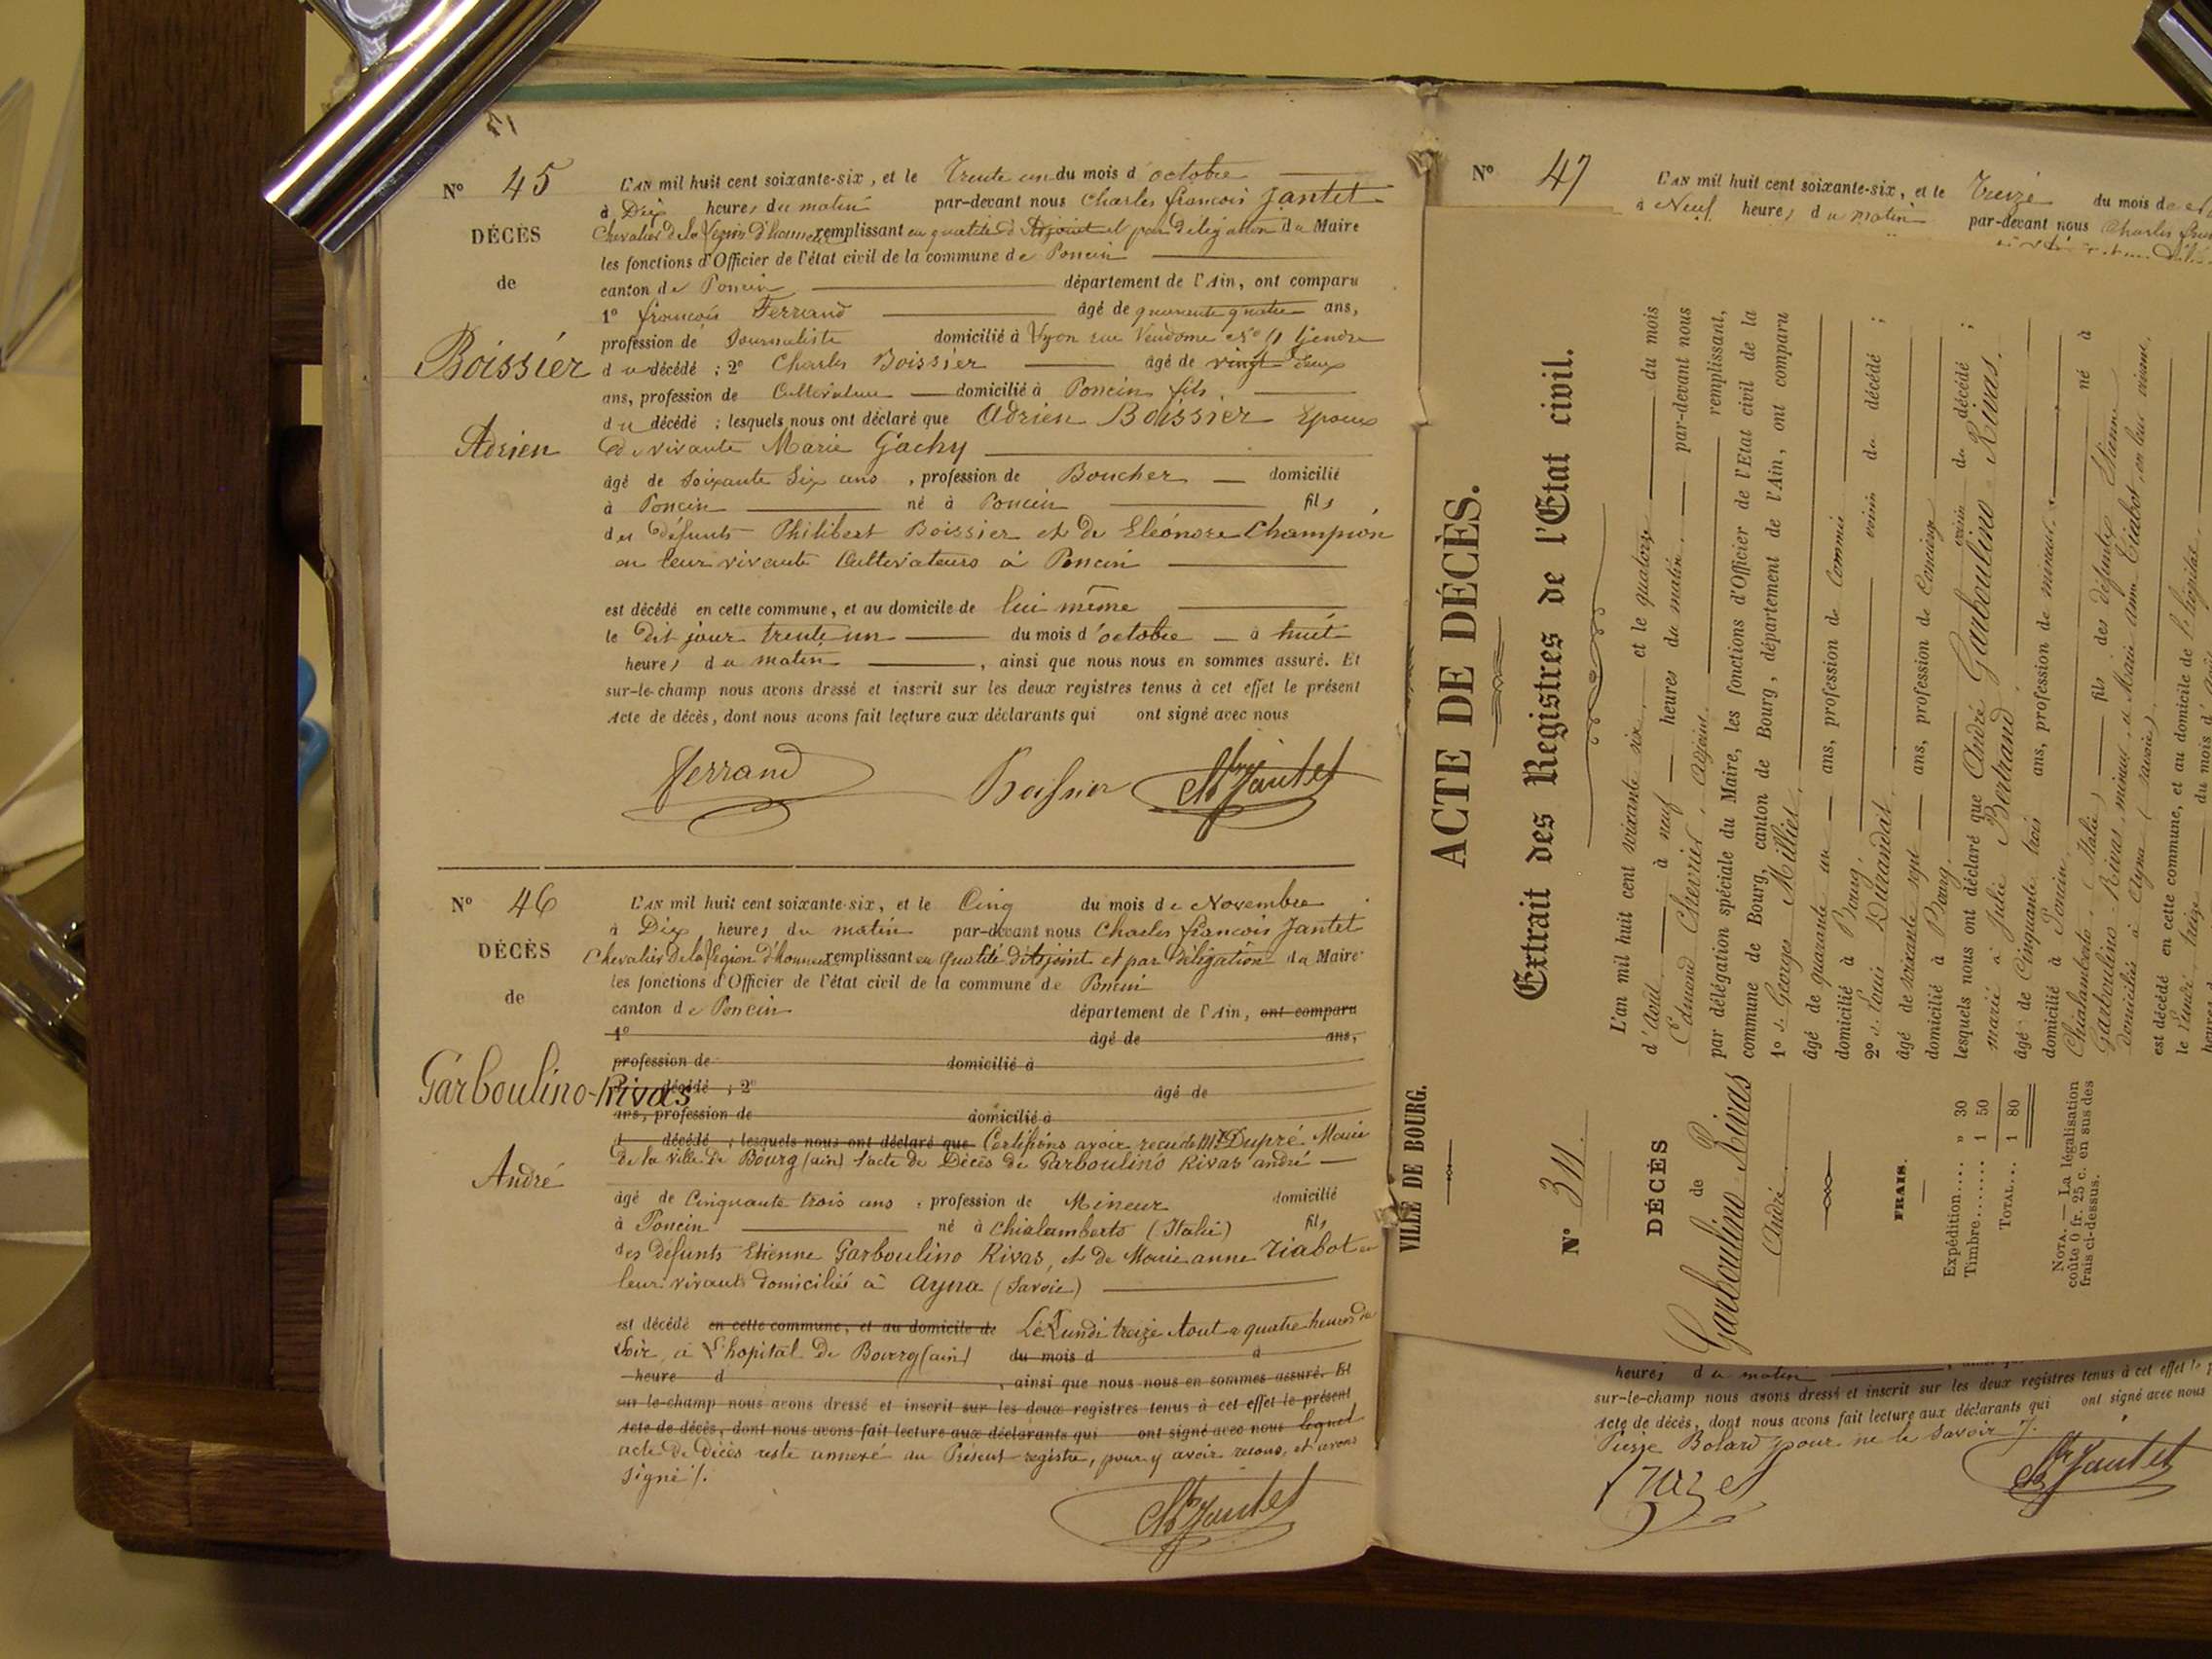 51
N° 45
DÉCÈS
de
Boissier
Adrien
L'AN mil huit cent soixante-six, et le Trente un du mois d'octobre
à Dix heures du matin par-devant nous Charles francois Jantet
Chevalier de la Légion d'honneur remplissant en qualité d'Adjoint et par délégation du Maire
les fonctions d'Officier de l'état civil de la commune de Poncin
canton de Poncin département de l'Ain, ont comparu
1° francois Ferrand âgé de quarante quatre ans,
profession de Journaliste domicilié à Lyon rue Vendome N° 11 Gendre
du décédé ; 2° Charles Boissier âgé de vingt deux
ans, profession de Cultivateur domicilié à Poncin fils
du décédé ; lesquels nous ont déclaré que Adrien Boissier Epoux
de vivante Marie Gachy
âgé de Soixante Six ans, profession de Boucher domicilié
à Poncin né à Poncin fils
des défunts Philibert Boissier et de Eléonore Champion
en leur vivants Cultivateurs à Poncin
est décédé en cette commune, et au domicile de lui même
le Dit jour trente un du mois d'octobre à huit
heures du matin, ainsi que nous nous en sommes assuré. Et
sur-le-champ nous avons dressé et inscrit sur les deux registres tenus à cet effet le présent
Acte de décès, dont nous avons fait lecture aux déclarants qui ont signé avec nous
Ferrand Boissier Ch Jantet
N° 46
DÉCÈS
de
Garboulino-Rivas
André
L'AN mil huit cent soixante-six, et le Cinq du mois de Novembre
à Dix heures du matin par-devant nous Charles francois Jantet
Chevalier de la Légion d'honneur remplissant en qualité d'Adjoint et par délégation du Maire
les fonctions d'Officier de l'état civil de la commune de Poncin
canton de Poncin département de l'Ain, ont comparu
1° âgé de ans,
profession de domicilié à
décédé ; 2° âgé de
ans, profession de domicilié à
d décédé ; lesquels nous ont déclaré que Certifions avoir recu de Mr Dupré Maire
de la Ville de Bourg (ain) l'acte de Décès de Garboulino Rivas andré
âgé de Cinquante trois ans, profession de Mineur domicilié
à Poncin né à Chialamberto (Italie) fils
des défunts Etienne Garboulino Rivas, et de Marie anne Tiabot en
leur vivants domiciliés à Ayna (Savoie)
est décédé en cette commune, et au domicile de Le Lundi treize Aout a quatre heures du
Soir, à L'hopital de Bourg (ain) du mois d à
heure d, ainsi que nous nous en sommes assuré. Et
sur-le-champ nous avons dressé et inscrit sur les deux registres tenus à cet effet le présent
Acte de décès, dont nous avons fait lecture aux déclarants qui ont signé avec nous lequel
acte de décès reste annexé au Présent registre, pour y avoir recours, et avons
Signé /.
Ch Jantet
N° 47
L'AN mil huit cent soixante-six, et le Treize du mois de
à Neuf heures du matin par-devant nous Charles
VILLE DE BOURG.
N° 311
DÉCÈS
de
Garboulino-Rivas
André
FRAIS.
Expédition.... » 30
Timbre....... 1 50
TOTAL... 1 80
NOTA. — La légalisation
coûte 0 fr. 25 c. en sus des
frais ci-dessus.
ACTE DE DÉCÈS.
Extrait des Registres de l'Etat civil.
L'an mil huit cent soixante six et le quatorze du mois
d'Août à neuf heures du matin, par-devant nous
Edmond Chevrier, Adjoint remplissant,
par délégation spéciale du Maire, les fonctions d'Officier de l'Etat civil de la
commune de Bourg, canton de Bourg, département de l'Ain, ont comparu
1° Georges Milliet,
âgé de quarante un ans, profession de Commis
domicilié à Bourg, voisin du décédé ;
2° Louis Durandal,
âgé de soixante sept ans, profession de Concierge
domicilié à Bourg, voisin du décédé ;
lesquels nous ont déclaré que André Garboulino Rivas,
marié à Julie Bertrand,
âgé de Cinquante trois ans, profession de mineur,
domicilié à Poncin, né à
Chialamberto (Italie) fils des défunts Etienne
Garboulino-Rivas, mineur, et Marie anne Tiabot, en leur vivant,
domiciliés à Ayna (Savoie)
est décédé en cette commune, et au domicile de l'hôpital,
le Lundi treize du mois d'août
heures du matin
sur-le-champ nous avons dressé et inscrit sur les deux registres tenus à cet effet le
Acte de décès, dont nous avons fait lecture aux déclarants qui ont signé avec nous
Bolard pour ne le savoir /.
Ch Jantet